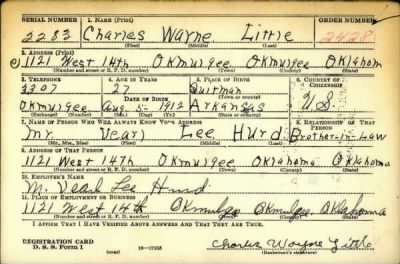 SERIAL NUMBER 1. NAME (Print) ORDER NUMBER
2283 Charles Wayne Little 2428
(First) (Middle) (Last)
2. ADDRESS (Print)
1121 West 14th Okmulgee Okmulgee Oklahoma
(Number and street or R. F. D. number) (Town) (County) (State)
3. TELEPHONE 4. AGE IN YEARS 5. PLACE OF BIRTH 6. COUNTRY OF CITIZENSHIP
3307 27 Quitman
DATE OF BIRTH (Town or county)
Okmurgee Aug 5 1912 Arkansas U.S.
(Exchange) (Number) (Mo.) (Day) (Yr.) (State or country)
7. NAME OF PERSON WHO WILL ALWAYS KNOW YOUR ADDRESS 8. RELATIONSHIP OF THAT PERSON
Mr. Vearl Lee Hurd Brother-in-Law
(Mr., Mrs., Miss) (First) (Middle) (Last)
9. ADDRESS OF THAT PERSON
1121 West 14th Okmulgee Okmulgee Oklahoma
(Number and street or R. F. D. number) (Town) (County) (State)
10. EMPLOYER'S NAME
M. Vearl Lee Hurd
11. PLACE OF EMPLOYMENT OR BUSINESS
1121 West 14th Okmulgee Okmulgee Oklahoma
(Number and street or R. F. D. number) (Town) (County) (State)
I AFFIRM THAT I HAVE VERIFIED ABOVE ANSWERS AND THAT THEY ARE TRUE.
REGISTRATION CARD
D. S. S. Form 1 16-17105 Charles Wayne Little
(Registrant's signature)